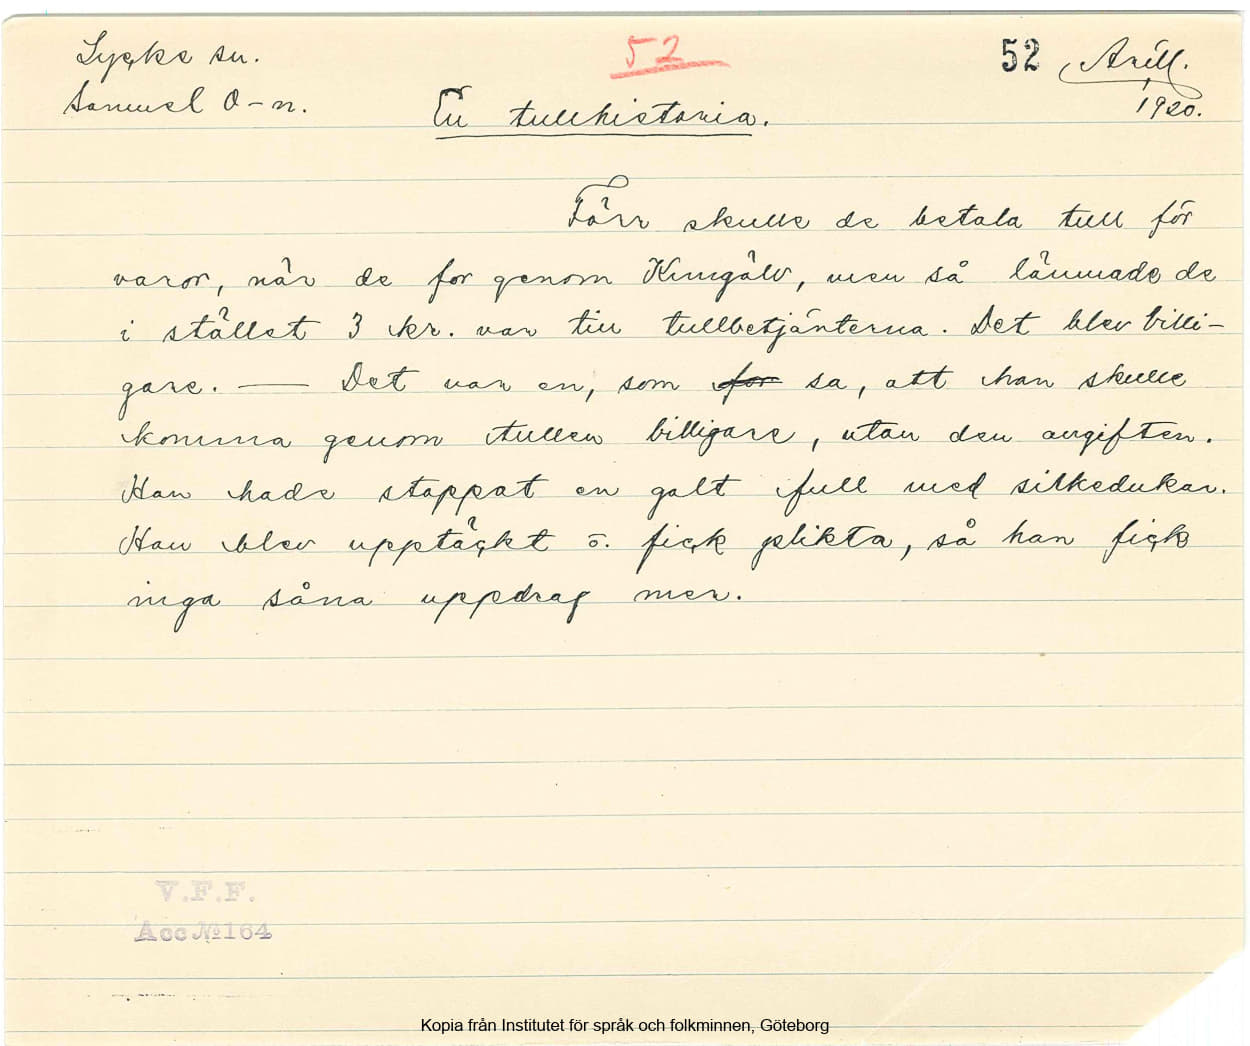 Lycke sn.
52
52 Arill.
Samuel O-n.
1920.
En tullhistoria.
Förr skulle de betala tull för
varor, når de for genom Kungälv, men så lämnade de
i stället 3 kr. var till tullbetjänterna. Det blev billi-
gare. — Det var en, som for sa, att han skulle
komma genom tullen billigare, utan den avgiften.
Han hade stoppat en galt full med silkedukar.
Han blev upptäckt o. fick plikta, så han fick
inga såna uppdrag mer.
V.F.F.
Acc № 164
Kopia från Institutet för språk och folkminnen, Göteborg